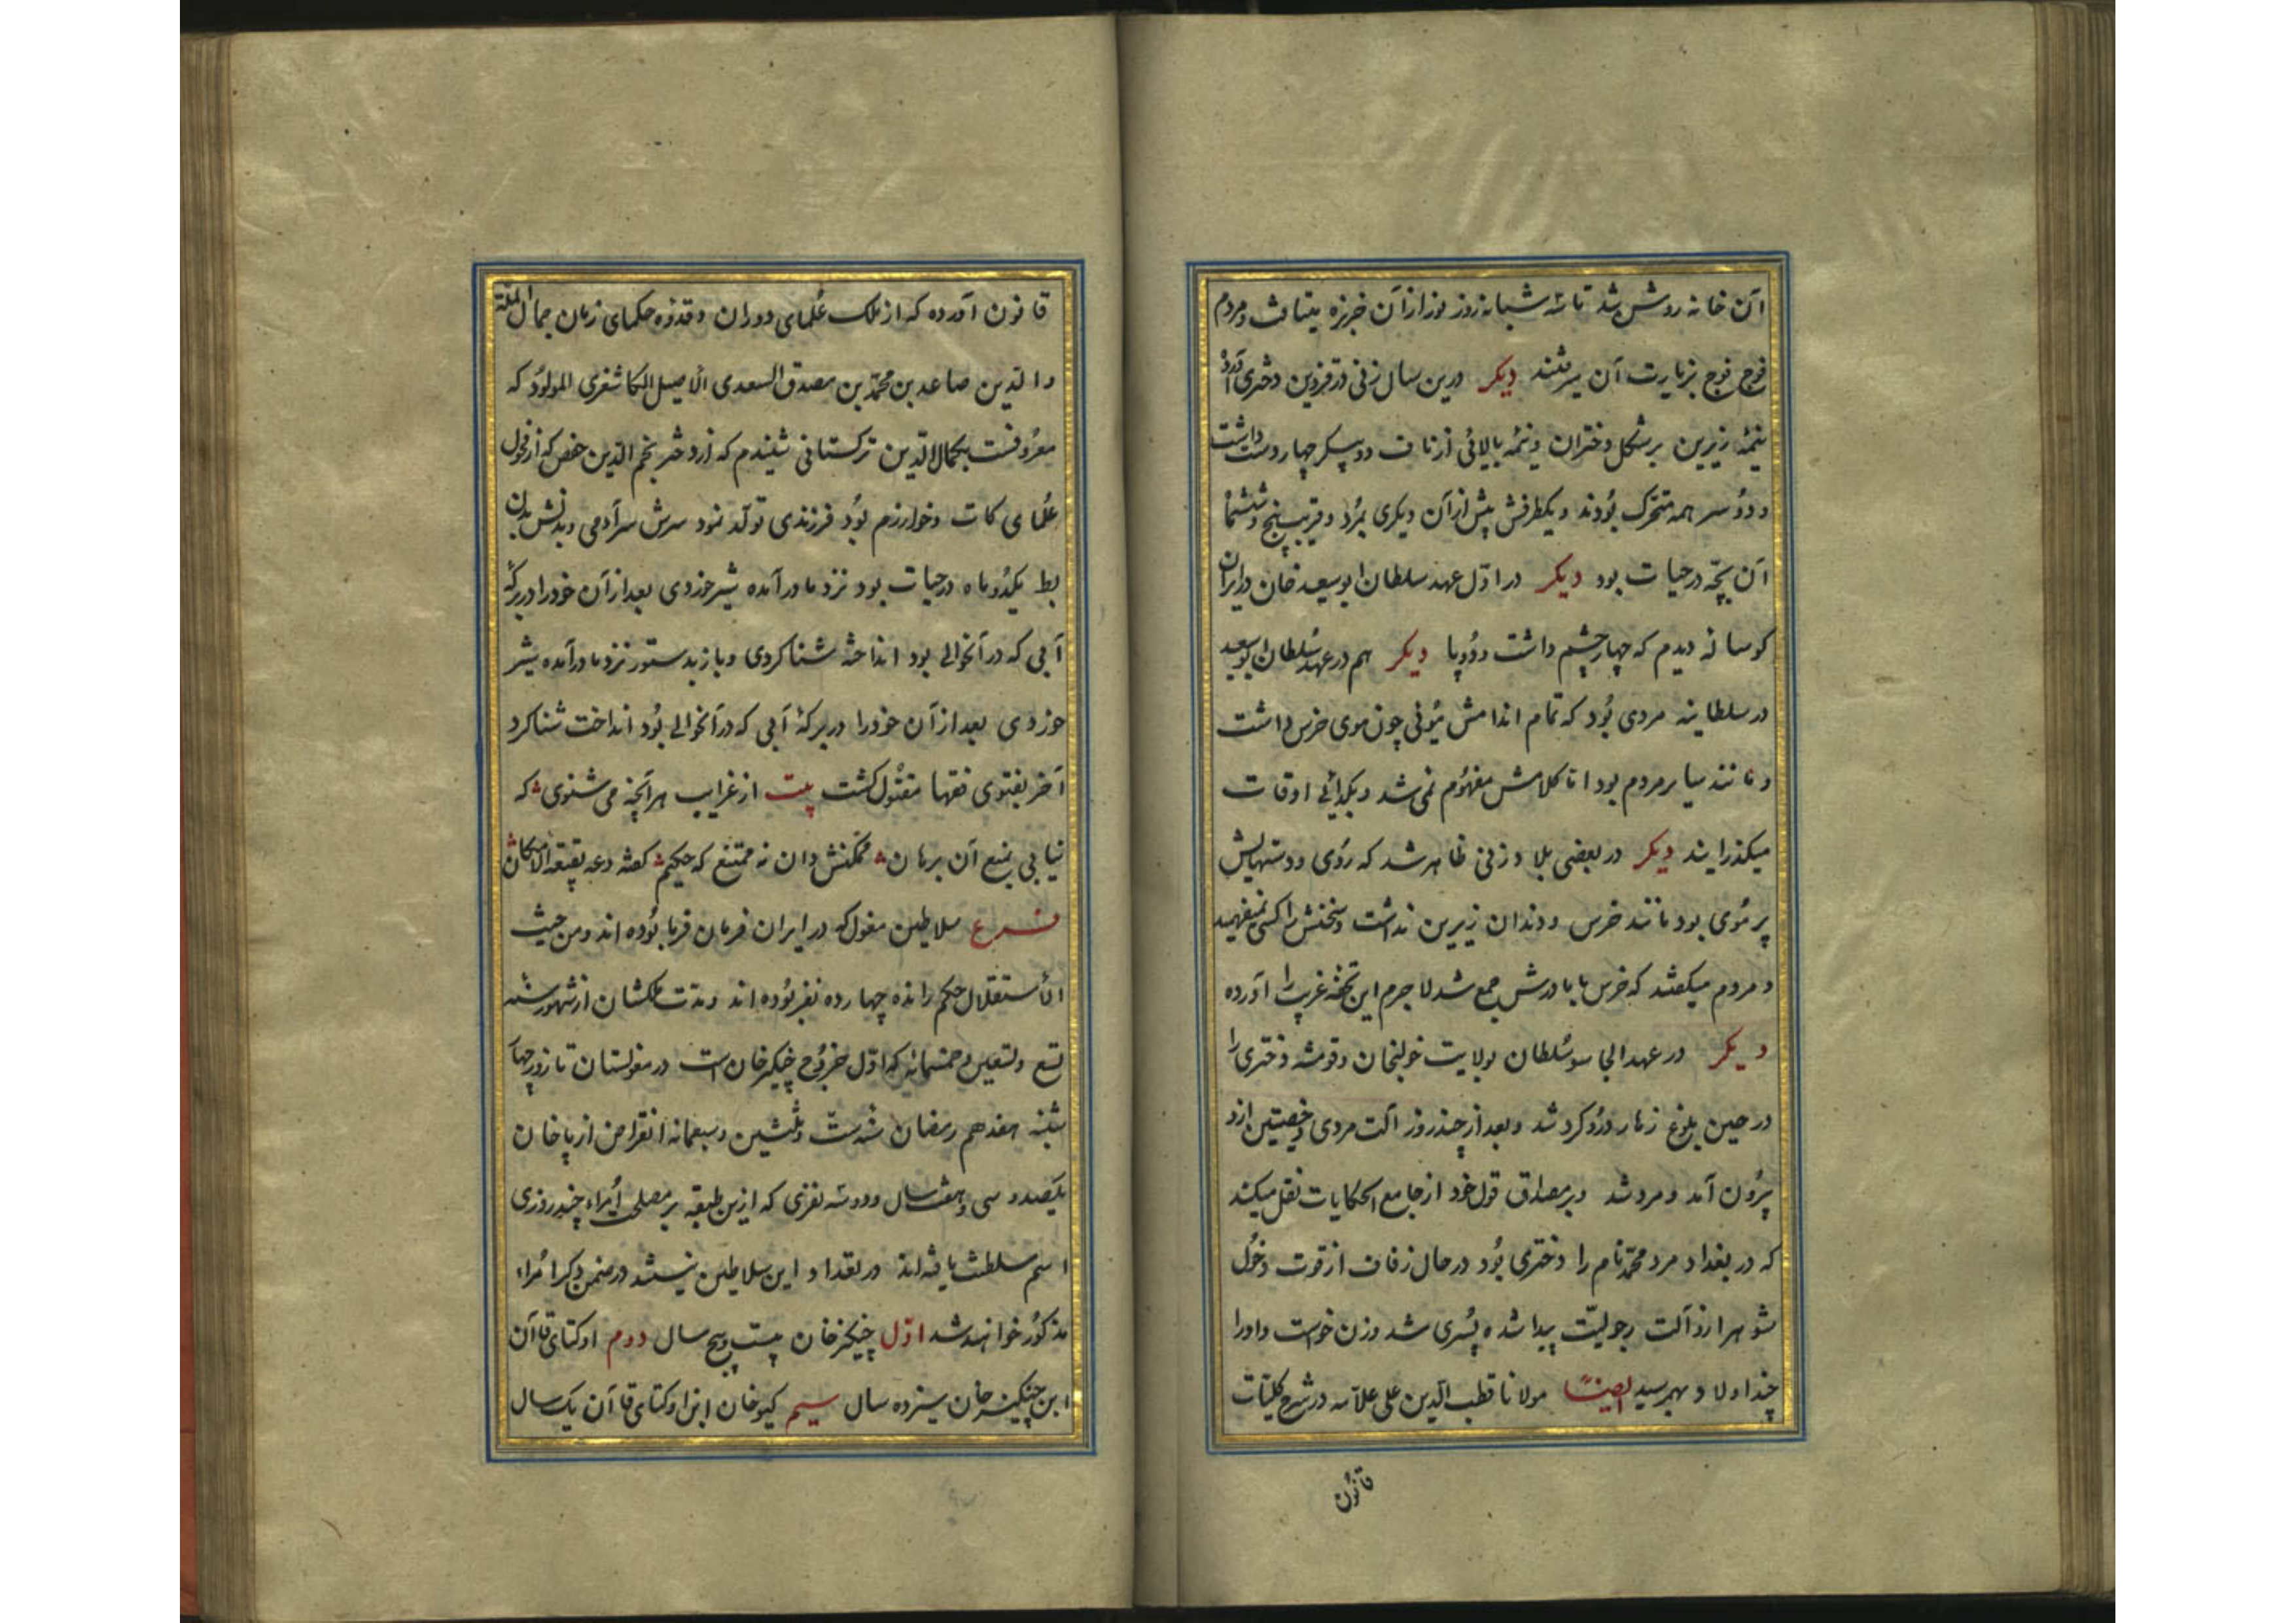 آن خانه روشن شد تا سه شبانه روز نور از آن خربزه میتافت و مردم
فوج فوج بزیارت آن میرفتند دیکر درین سال زنی در قزوین دختری آورد
نیمهٔ زیرین بر شکل دختران و نیمهٔ بالائی از ناف دو پیکر چهار دست داشت
و دو سر همه متحرک بودند و یکطرفش پیش از آن دیکری بمرد و قریب پنج و شش ماه
آن بچه در حیات بود دیکر در اول عهد سلطان ابو سعید خان در ایران
کوساله دیدم که چهار چشم داشت و دو پا دیکر هم در عهد سلطان ابو سعید
در سلطانیه مردی بود که تمام اندامش موئی چون موی خرس داشت
و مانند سایر مردم بود اما کلامش مفهوم نمی شد و بکدائی اوقات
میکذرانید دیکر در بعضی بلاد زنی ظاهر شد که روی و دستهایش
پر موی بود مانند خرس و دندان زیرین نداشت و سخنش را کسی نمیفهمید
و مردم میکفتند که خرس با مادرش جمع شد لاجرم این تحفهٔ غریب را آورده
دیکر در عهد الجایتو سلطان بولایت خولنجان و قومشه دختری را
در حین بلوغ زهار درد کرد شد و بعد از چند روز آلت مردی و خصیتین ازو
بیرون آمد و مرد شد و بر مصداق قول خود از جامع الحکایات نقل میکند
که در بغداد مرد محمد نام را دختری بود در حال زفاف از قوت دخول
شوهر ازو آلت رجولیت پیدا شده پسری شد و زن خواست و او را
چند اولاد بهم رسید ایضا مولانا قطب الدین علی علامه در شرح کلیات
قانون
قانون آورده که از ملک علمای دوران و قدوه حکمای زمان جمال الملة
و الدین صاعد بن محمد بن مصدق السعدی الاصیل الکاشغری المولود که
معروفست بجمال الدین ترکستانی شنیدم که از دختر نجم الدین حفص که از فحول
علمای کات و خوارزم بود فرزندی تولد نمود سرش سر آدمی و بدنش بدن
بط یکدو ماه در حیات بود نزد مادر آمده شیر خوردی بعد از آن خود را در برکهٔ
آبی که در آنحوالی بود انداخته شنا کردی و باز بدستور نزد مادر آمده شیر
خوردی بعد از آن خود را در برکهٔ آبی که در آنحوالی بود انداخت شنا کرد
آخر بفتوی فقها مقتول کشت بیت از غرایب هر آنچه می شنوی که
نیابی بمنع آن برهان ممکنش دان نه ممتنع که حکیم کفته دعه بقعة الامکان
فرع سلاطین مغول که در ایران فرمان فرما بوده اند و من حیث
الاستقلال حکم رانده چهارده نفر بوده اند و مدت ملکشان از شهور سنه
تسع و تسعین و خمسمائه که اول خروج چنکیز خان است در مغولستان تا روز چهار
شنبه هفدهم رمضان سنه ست و ثلثین و سبعمائه انقراض ارپا خان
یکصد و سی و هفت سال و دو سه نفری که ازین طبقه بر مصلحت امراء چند روزی
اسم سلطنت یافته اند در بغداد این سلاطین نیستند در ضمن ذکر امراء
مذکور خواهند شد اول چنکیز خان بیست و پنج سال دوم اوکتای قاآن
ابن چنکیز خان سیزده سال سیم کیوخان ابن اوکتای قاآن یک سال